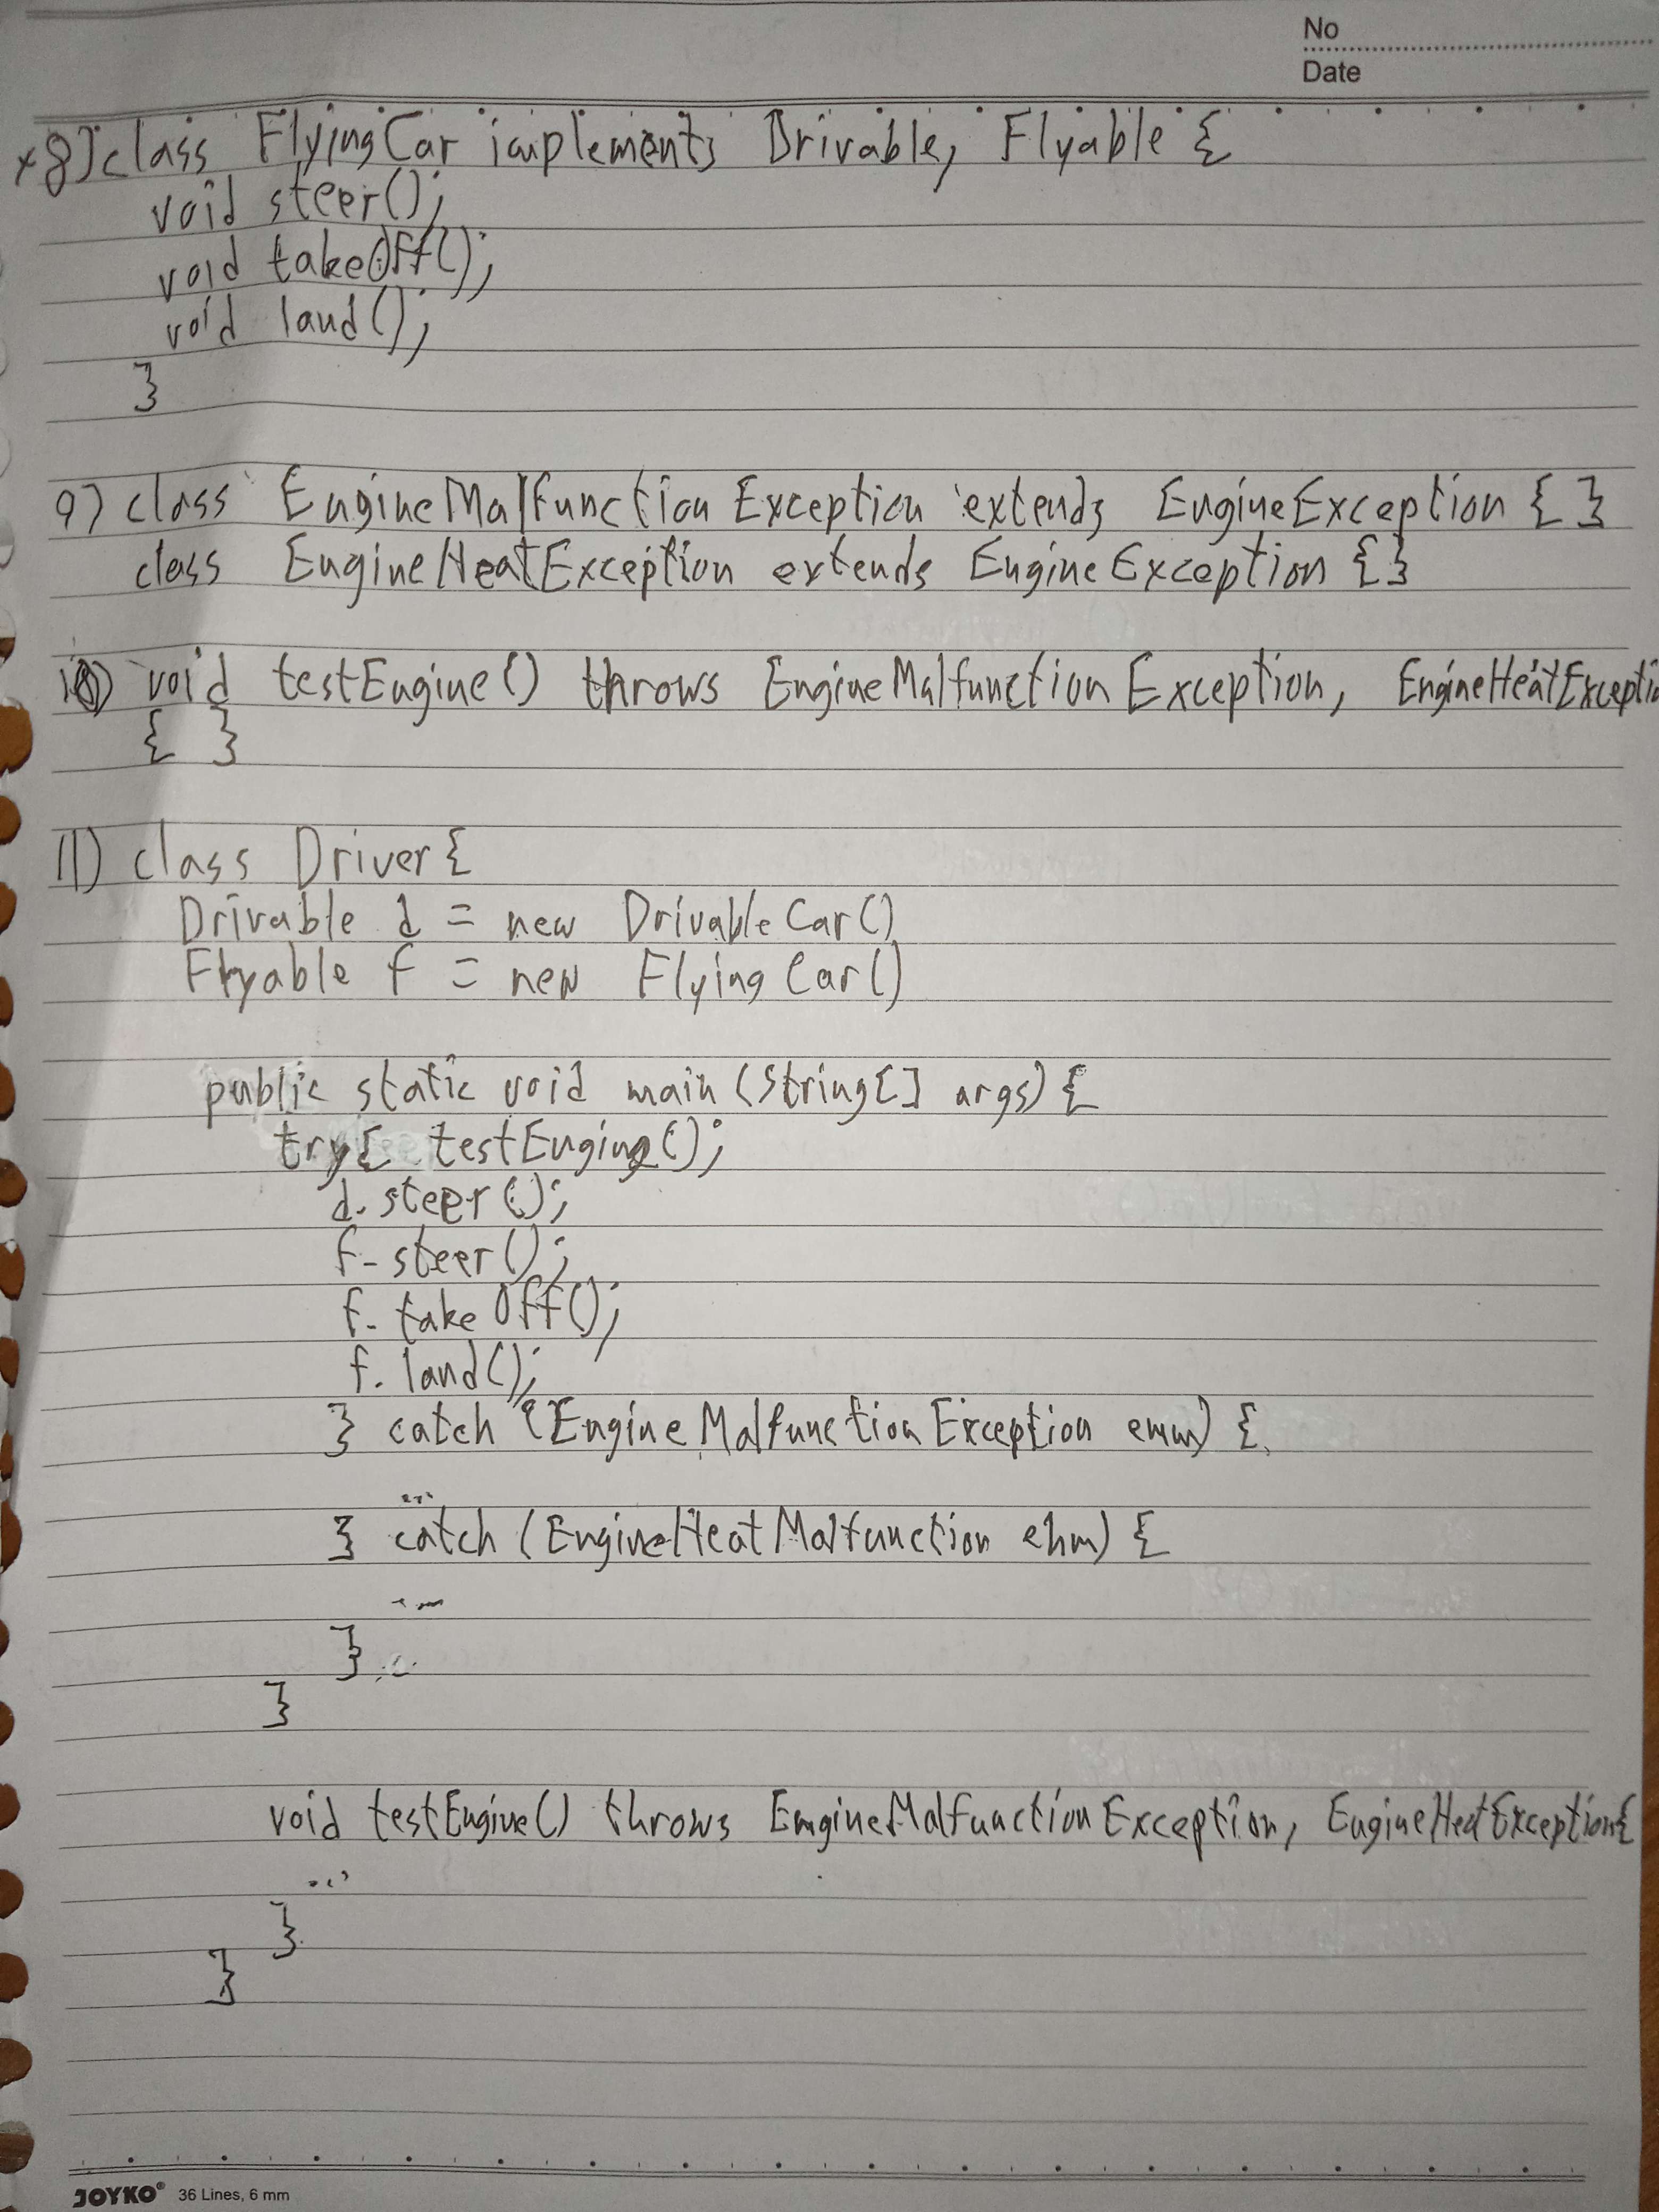 No
Date
*8) class FlyingCar implements Drivable, Flyable {
void steer();
void takeOff();
void land();
}
9) class EngineMalfunctionException extends EngineException { }
class EngineHeatException extends EngineException { }
10) void testEngine() throws EngineMalfunctionException, EngineHeatExceptio
{ }
11) class Driver {
Drivable d = new DrivableCar()
Flyable f = new FlyingCar()
public static void main (String[] args) {
try { testEngine();
d. steer();
f. steer();
f. takeOff();
f. land();
} catch (EngineMalfunctionException emm) {
...
} catch (EngineHeatMalfunction ehm) {
...
}
}
void testEngine() throws EngineMalfunctionException, EngineHeatException {
...
}
}
JOYKO® 36 Lines, 6 mm